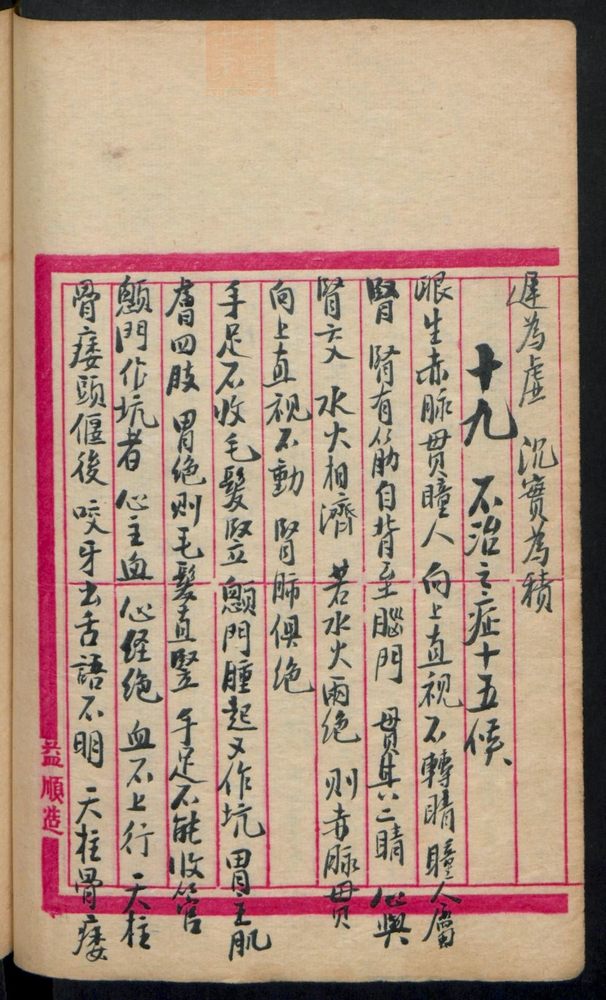 遲為虛　沉實為積
十九　不治之症十五候
眼生赤脉貫瞳人　向上直視不轉睛　瞳人屬
腎　腎有筋自背至腦門　貫其二睛　心與
腎交　水火相濟　若水火兩絶　則赤脉貫
向上直視不動　腎肺俱絶
手足不收毛髮竪　顖門腫起又作坑　胃主肌
膚四肢　胃絶則毛髮直竪　手足不能收管
顖門作坑者　心主血　心経絶　血不上行　天柱
骨痿頭偃後　咬牙出舌語不明　天柱骨痿
益順造